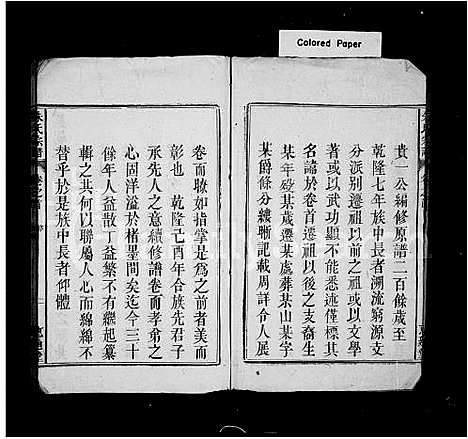 Colored Paper
貴一公編修原譜二百餘歲至
乾隆七年族中長者溯流窮源支
分派別遷祖以前之祖或以文學
著或以武功顯不能悉述僅標其
名諱於卷首遷祖以後之支裔生
某年歿某歲遷某處葬某山某字
某爵條分縷晰記載周詳令人展
卷而瞭如指掌是為之前者美而
彰也 乾隆己酉年合族先君子
承先人之意續修譜卷而孝弟之
心固洋溢於楮墨間矣迄今三十
餘年人益散丁益繁不有以起纂
輯之其何以聯屬人心而綿綿不
替乎於是族中長者仰體